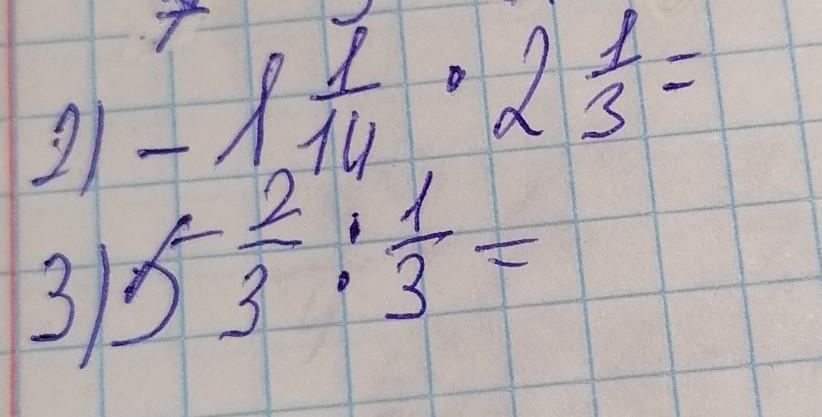 2) - 1 1/14 · 2 1/3 =
3) 5 2/3 : 1/3 =